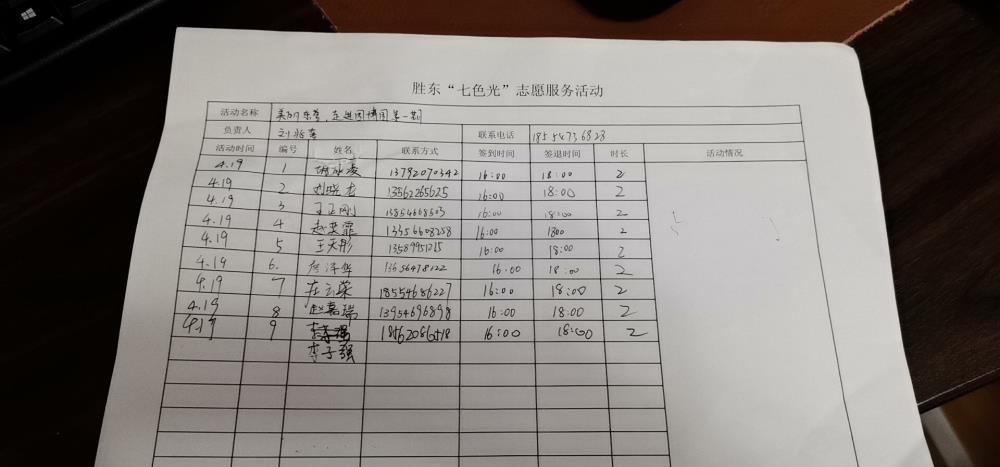 胜东“七色光”志愿服务活动
活动名称 美丽东营，走进园博园第一期
负责人 联系电话 18554736828
活动时间 编号 姓名 联系方式 签到时间 签退时间 时长 活动情况
4.19 1 13792070342 16:00 18:00 2
4.19 2 刘晓杰 13562265625 16:00 18:00 2
4.19 3 王正刚 16:00 18:00 2
4.19 4 赵奕霏 13356608258 16:00 1800 2
4.19 5 王天彤 16:00 18:00 2
4.19 6. 16:00 18:00 2
4.19 7 18554686227 16:00 18:00 2
4.19 8 赵嘉瑞 13954696898 16:00 18:00 2
4.19 9 16:00 18:00 2
李子强